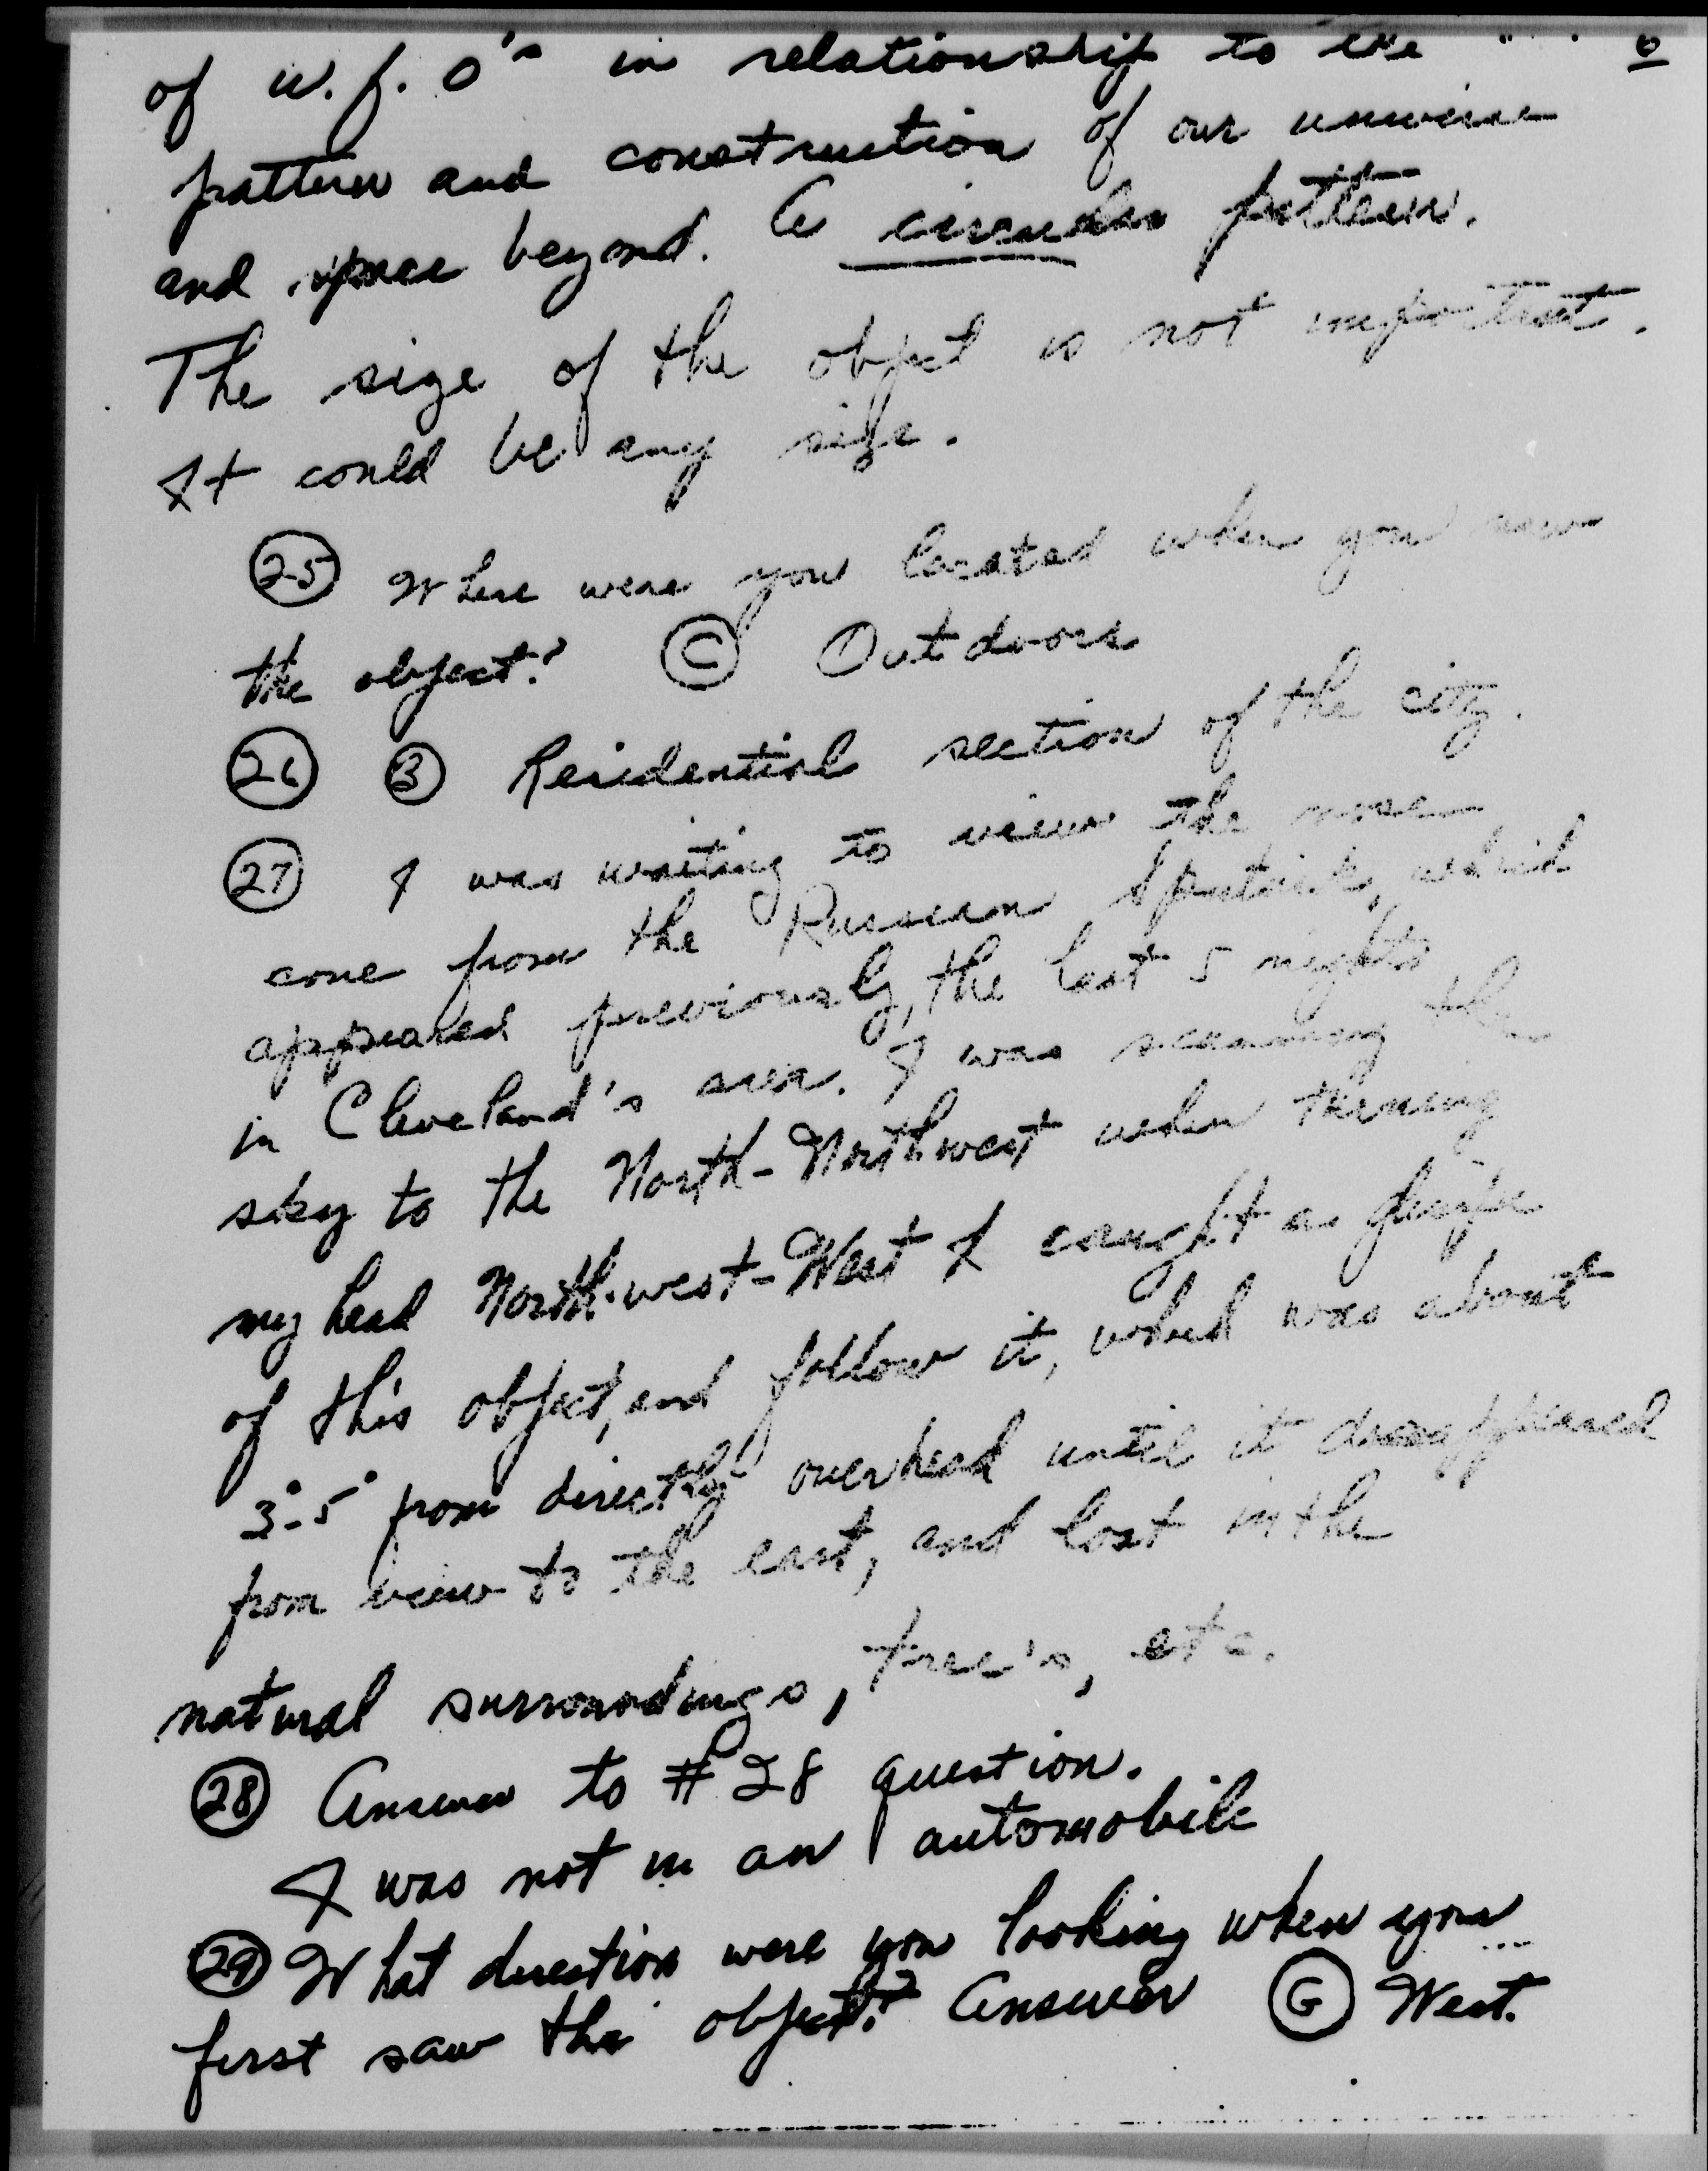 of u.f.o's in relationship to the 6
pattern and construction of our universe
and space beyond. A circular pattern.
The size of the object is not important.
It could be any size.
(25) Where were you located when you saw
the object? (C) Outdoors
(26) (3) Residential section of the city.
(27) I was waiting to view the nose
cone from the Russian Sputnik, which
appeared previously, the last 5 nights
in Cleveland's area. I was scanning the
sky to the North-Northwest when turning
my head North-west-West I caught a glimpse
of this object, and follow it, which was about
3°-5° from directly overhead until it disappeared
from view to the east, and lost in the
natural surroundings, tree's, etc.
(28) Answer to #28 question.
I was not in an automobile
(29) What direction were you looking when you
first saw the object? Answer (G) West.